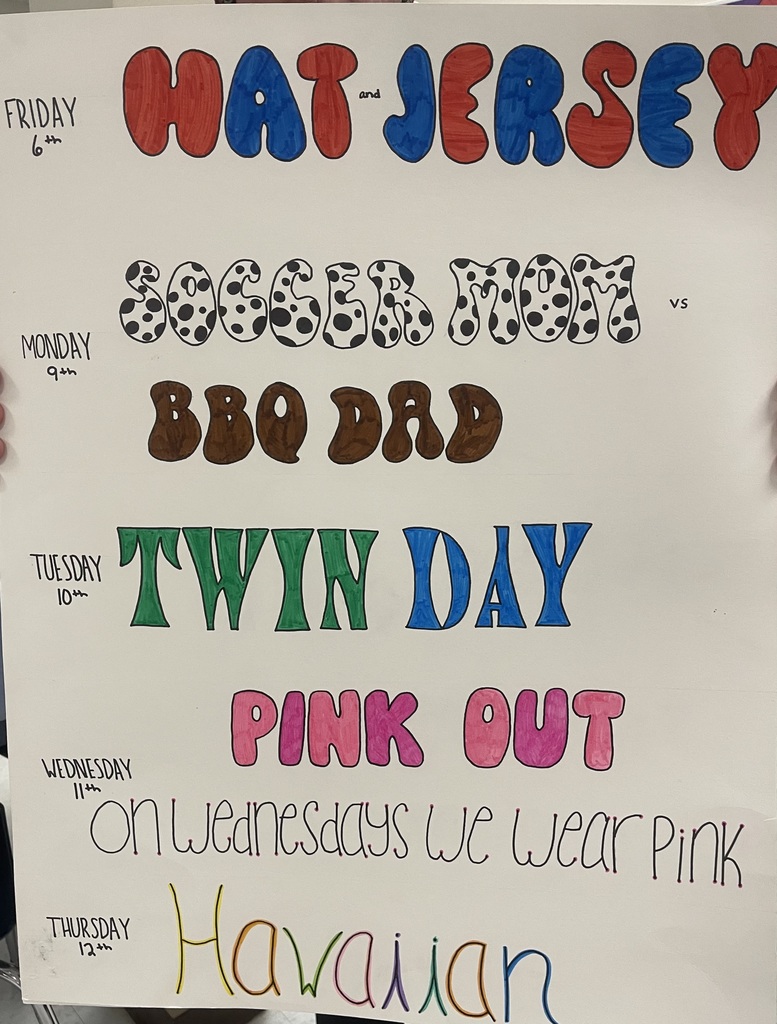 FRIDAY
6th
HAT and JERSEY
SOCCER MOM vs
MONDAY
9th
BBQ DAD
TUESDAY
10th
TWIN DAY
PINK OUT
WEDNESDAY
11th
on wednesdays we wear pink
THURSDAY
12th
Hawaiian